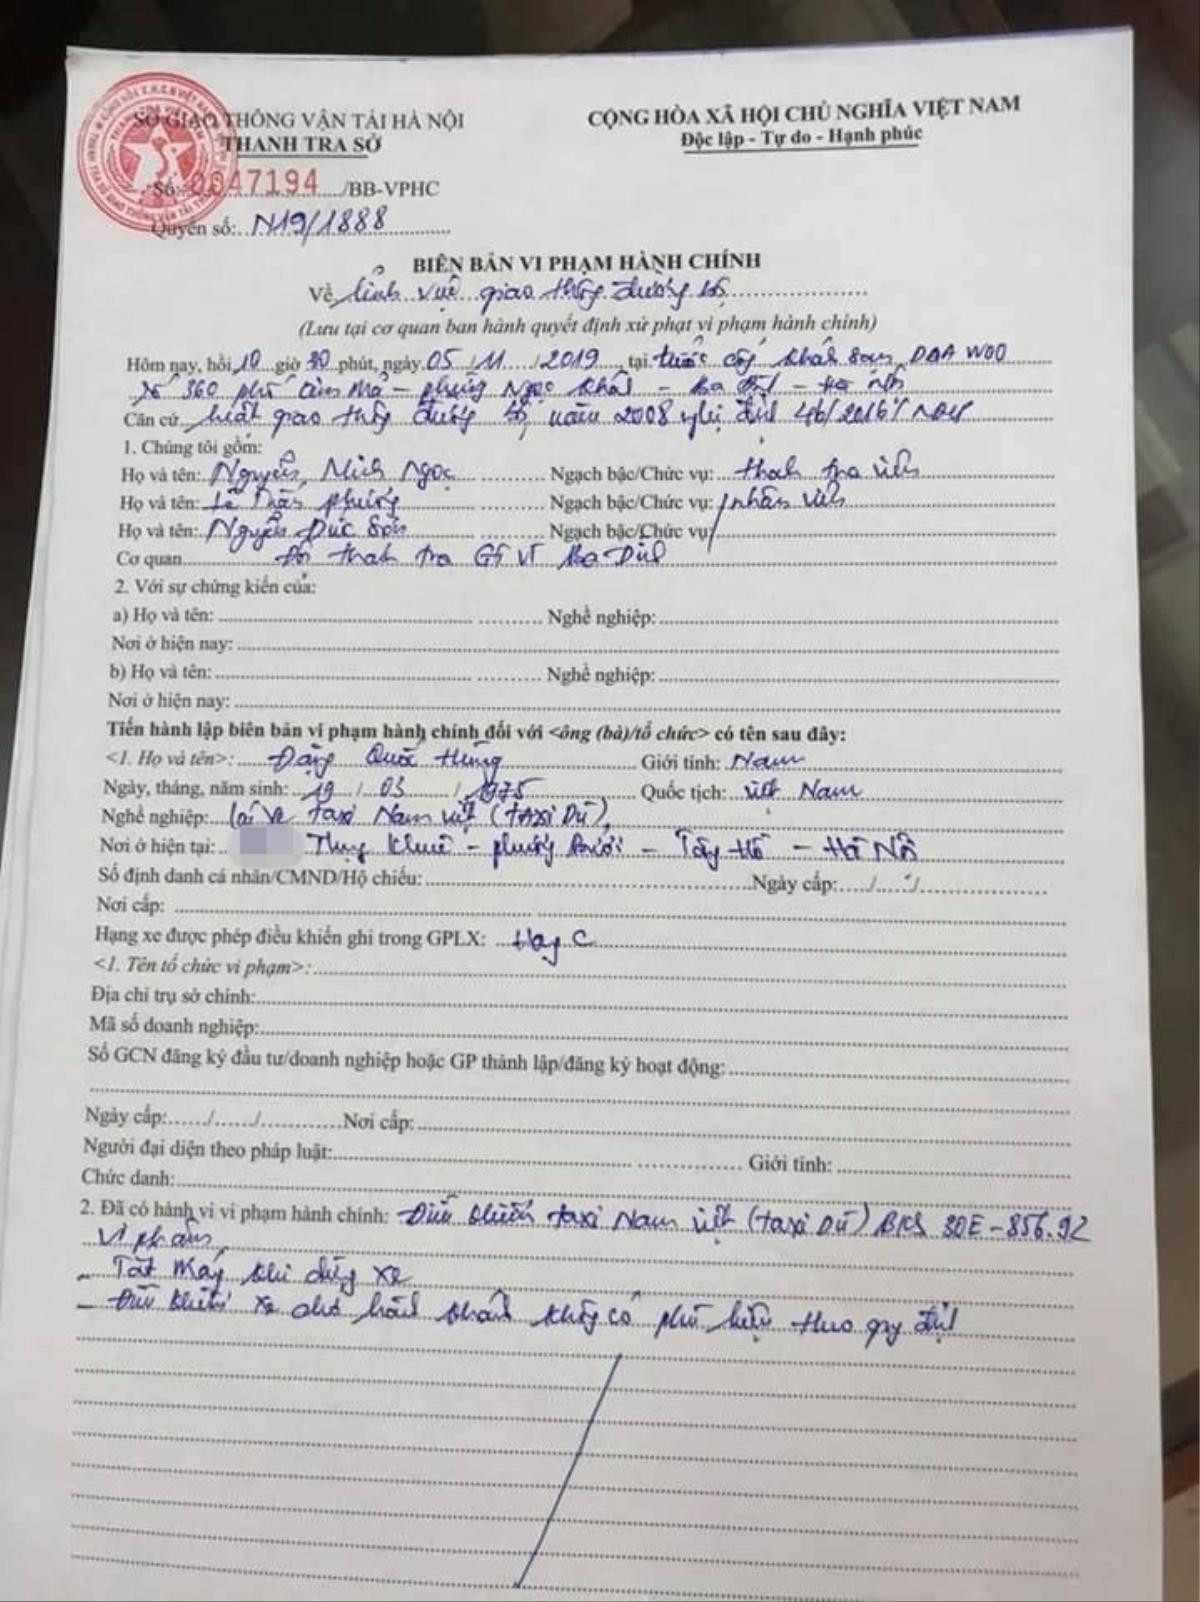 SỞ GIAO THÔNG VẬN TẢI HÀ NỘI
THANH TRA SỞ
CỘNG HÒA XÃ HỘI CHỦ NGHĨA VIỆT NAM
Độc lập - Tự do - Hạnh phúc
Số: 0047194 /BB-VPHC
Quyển số: N19/1888
BIÊN BẢN VI PHẠM HÀNH CHÍNH
Về lĩnh vực giao thông đường bộ
(Lưu tại cơ quan ban hành quyết định xử phạt vi phạm hành chính)
Hôm nay, hồi 10 giờ 30 phút, ngày 05/11/2019 tại trước cổng khách sạn DAA WOO
số 360 phố - phường Ngọc Khánh - Ba Đình - Hà Nội
Căn cứ luật giao thông đường bộ năm 2008 nghị định 46/2016/NĐCP
1. Chúng tôi gồm:
Họ và tên: Nguyễn Minh Ngọc Ngạch bậc/Chức vụ: thanh tra viên
Họ và tên: Lê Phương Ngạch bậc/Chức vụ: nhân viên
Họ và tên: Nguyễn Đức Sơn Ngạch bậc/Chức vụ:
Cơ quan Đội thanh tra GTVT Ba Đình
2. Với sự chứng kiến của:
a) Họ và tên: Nghề nghiệp:
Nơi ở hiện nay:
b) Họ và tên: Nghề nghiệp:
Nơi ở hiện nay:
Tiến hành lập biên bản vi phạm hành chính đối với <ông (bà)/tổ chức> có tên sau đây:
<1. Họ và tên>: Đặng Quốc Hùng Giới tính: Nam
Ngày, tháng, năm sinh: 19/03/1975 Quốc tịch: Việt Nam
Nghề nghiệp: lái xe taxi Nam Việt (taxi Dù)
Nơi ở hiện tại: Thụy Khuê - phường Bưởi - Tây Hồ - Hà Nội
Số định danh cá nhân/CMND/Hộ chiếu: Ngày cấp: / /
Nơi cấp:
Hạng xe được phép điều khiển ghi trong GPLX: Hạng C
<1. Tên tổ chức vi phạm>:
Địa chỉ trụ sở chính:
Mã số doanh nghiệp:
Số GCN đăng ký đầu tư/doanh nghiệp hoặc GP thành lập/đăng ký hoạt động:
Ngày cấp: / / Nơi cấp:
Người đại diện theo pháp luật: Giới tính:
Chức danh:
2. Đã có hành vi vi phạm hành chính: Điều khiển taxi Nam Việt (taxi Dù) BKS 30E-856.92
vi phạm
- Tắt máy khi dừng xe
- Điều khiển xe chở hành khách không có phù hiệu theo quy định